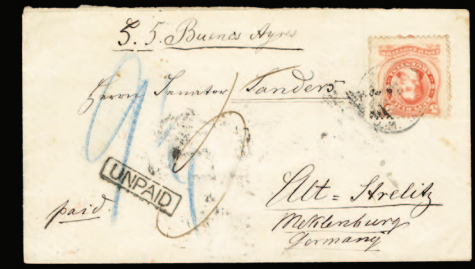 S. S. Buenos Ayres
Herrn Senator Sanders
UNPAID
paid.
Alt=Strelitz
Meklenburg
Germany